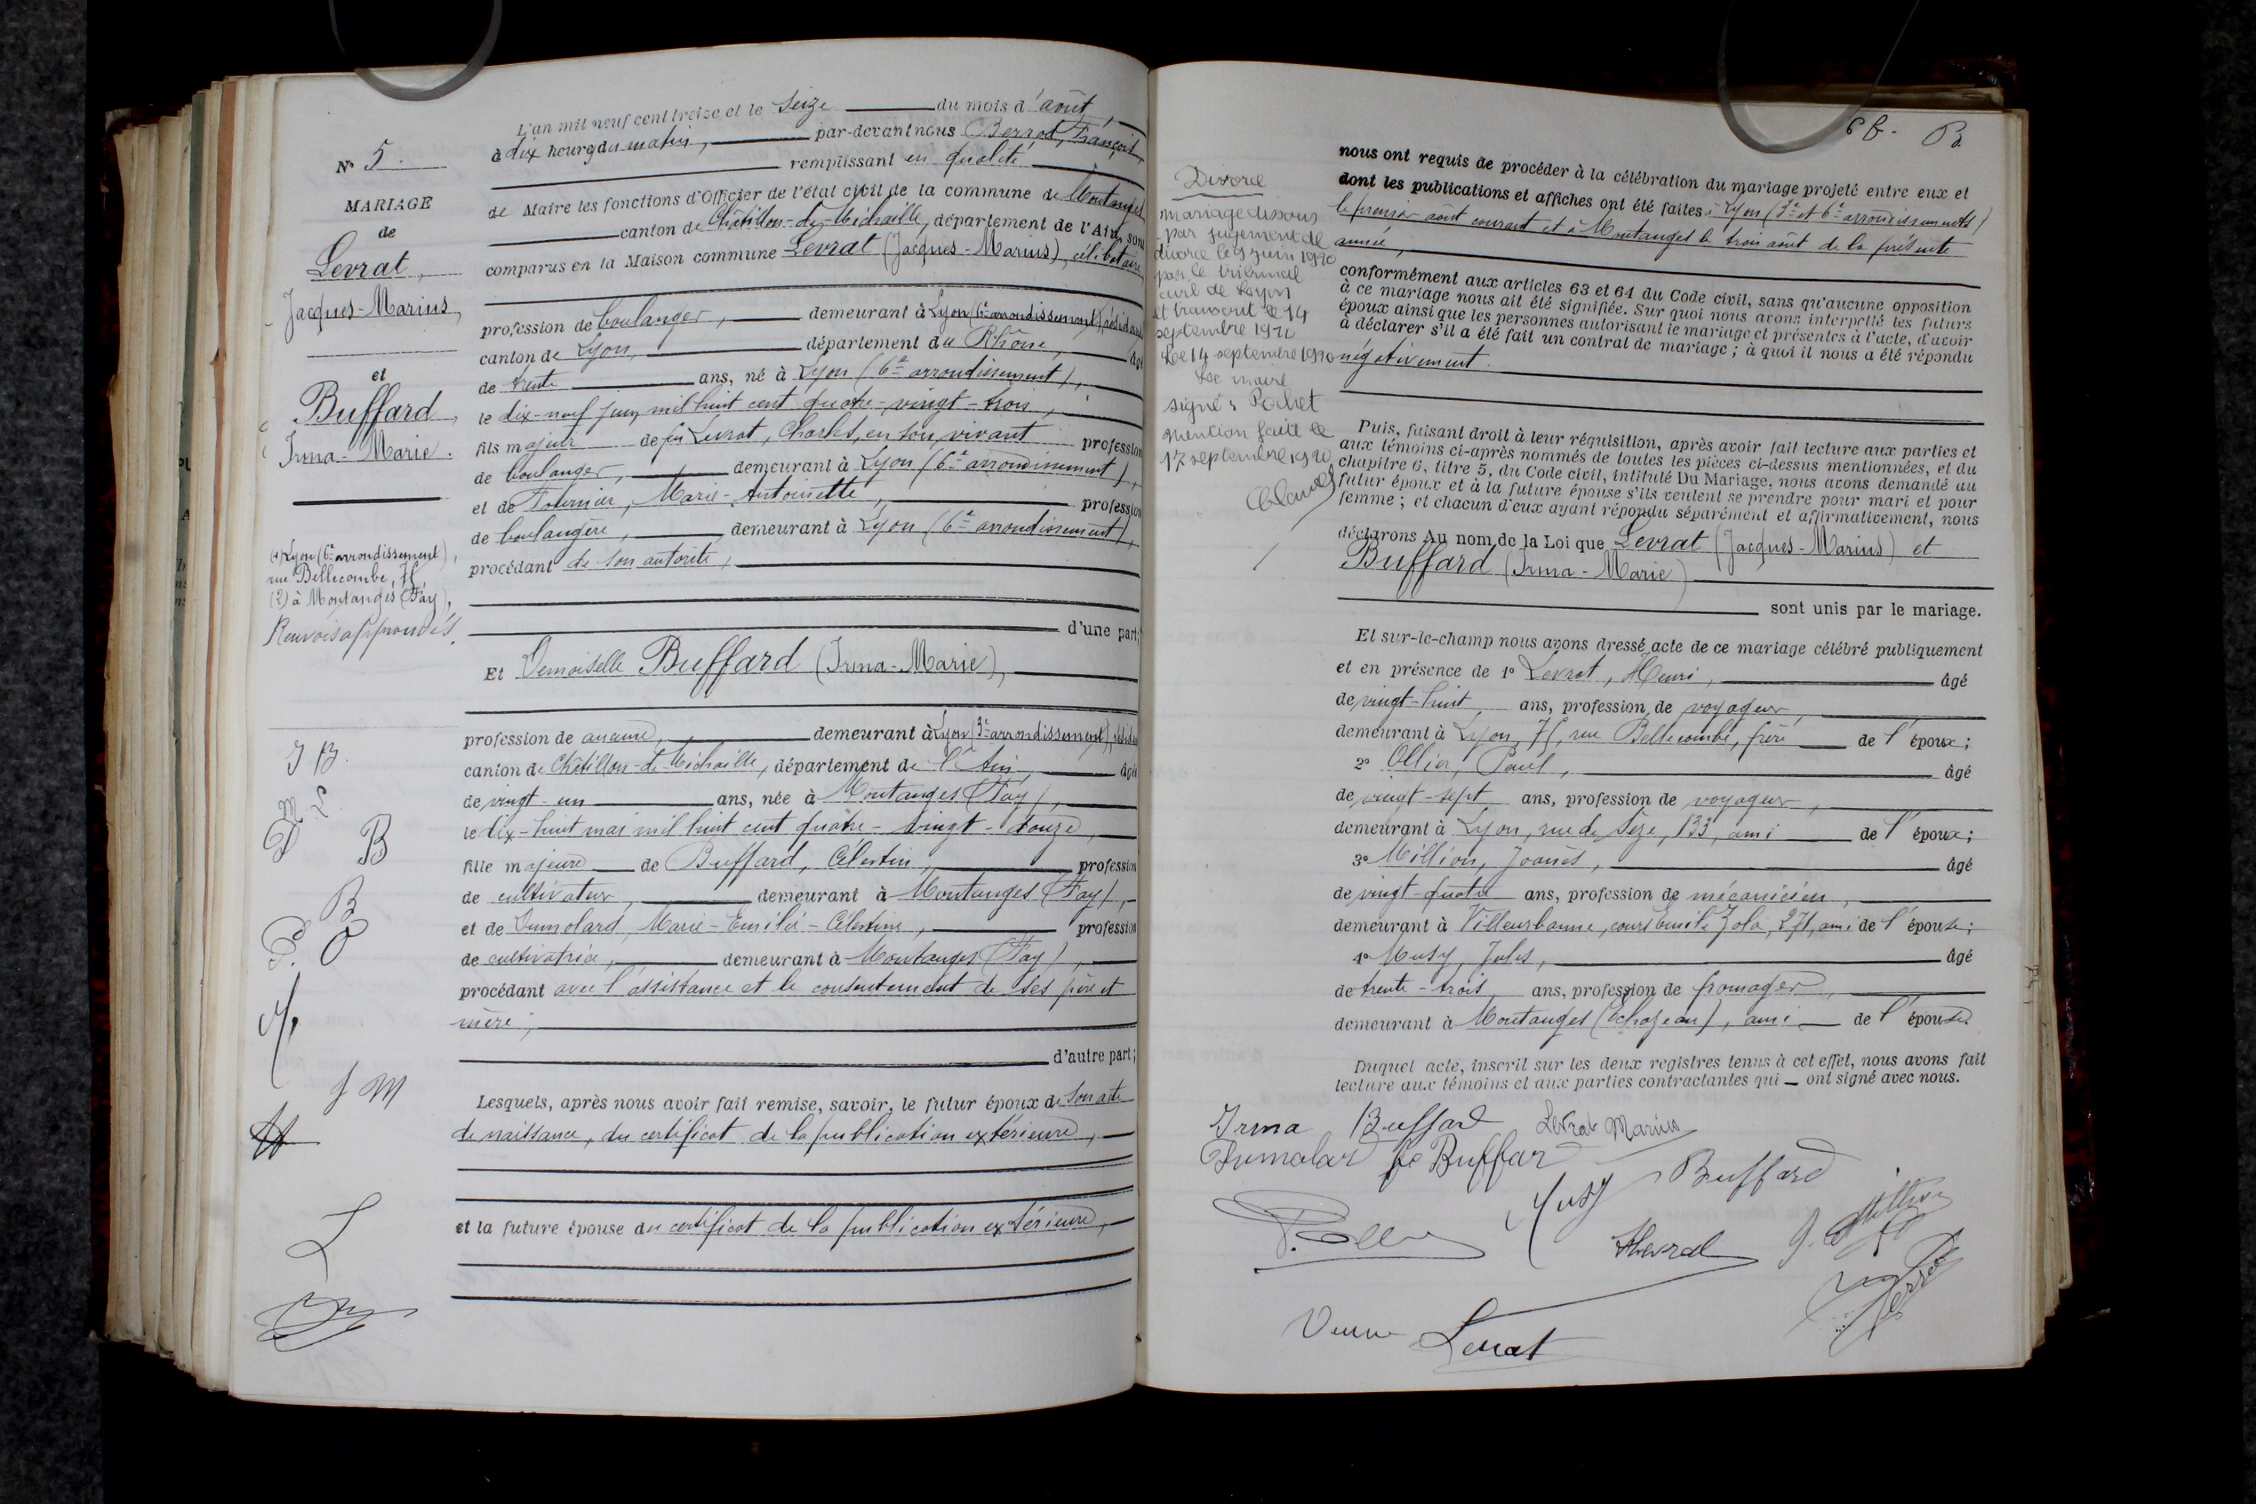 N° 5.
MARIAGE
de
Levrat,
Jacques-Marius,
et
Buffard
Irma-Marie.
(1) Lyon (6e arrondissement),
rue Bellecombe, 75,
(2) à Montanges (Fay),
Renvois approuvés.
I B
M L
D B
B
P. O
J M
L
L'an mil neuf cent treize et le seize du mois d'août,
à dix heures du matin, par-devant nous Berrod, François,
remplissant en qualité
de Maire les fonctions d'Officier de l'état civil de la commune de Montanges
canton de Châtillon-de-Michaille, département de l'Ain, sont
comparus en la Maison commune Levrat (Jacques-Marius), célibataire,
profession de boulanger, demeurant à Lyon (6e arrondissement)
canton de Lyon, département du Rhône, âgé
de trente ans, né à Lyon (6e arrondissement),
le dix-neuf juin mil huit cent quatre-vingt-trois,
fils majeur de feu Levrat, Charles, en son vivant profession
de boulanger, demeurant à Lyon (6e arrondissement),
et de Fournier, Marie-Antoinette, profession
de boulangère, demeurant à Lyon (6e arrondissement),
procédant de son autorité,
d'une part;
Et Demoiselle Buffard (Irma-Marie),
profession de aucune, demeurant à Lyon (3e arrondissement),
canton de Châtillon-de-Michaille, département de l'Ain, âgée
de vingt-un ans, née à Montanges (Fay),
le dix-huit mai mil huit cent quatre-vingt-douze,
fille majeure de Buffard, Célestin, profession
de cultivateur, demeurant à Montanges (Fay),
et de Dumolard, Marie-Emilie-Célestine, profession
de cultivatrice, demeurant à Montanges (Fay),
procédant avec l'assistance et le consentement de ses père et
mère;
d'autre part;
Lesquels, après nous avoir fait remise, savoir, le futur époux de son acte
de naissance, du certificat de la publication extérieure,
et la future épouse du certificat de la publication extérieure,
Divorce
mariage dissous
par jugement de
divorce le 9 juin 1920
par le tribunal
civil de Lyon
et transcrit le 14
septembre 1920
Le 14 septembre 1920
Le maire
signé: Pochet
mention faite le
17 septembre 1920
nous ont requis de procéder à la célébration du mariage projeté entre eux et
dont les publications et affiches ont été faites à Lyon (3e et 6e arrondissements)
le premier août courant et à Montanges le trois août de la présente
année,
conformément aux articles 63 et 64 du Code civil, sans qu'aucune opposition
à ce mariage nous ait été signifiée. Sur quoi nous avons interpellé les futurs
époux ainsi que les personnes autorisant le mariage et présentes à l'acte, d'avoir
à déclarer s'il a été fait un contrat de mariage; à quoi il nous a été répondu
négativement.
Puis, faisant droit à leur réquisition, après avoir fait lecture aux parties et
aux témoins ci-après nommés de toutes les pièces ci-dessus mentionnées, et du
chapitre 6, titre 5, du Code civil, intitulé Du Mariage, nous avons demandé au
futur époux et à la future épouse s'ils veulent se prendre pour mari et pour
femme; et chacun d'eux ayant répondu séparément et affirmativement, nous
déclarons Au nom de la Loi que Levrat (Jacques-Marius) et
Buffard (Irma-Marie)
sont unis par le mariage.
Et sur-le-champ nous avons dressé acte de ce mariage célébré publiquement
et en présence de 1° Levrat, Henri, âgé
de vingt-huit ans, profession de voyageur,
demeurant à Lyon, 75, rue Bellecombe, frère de l'époux;
2° Ollier, Paul, âgé
de vingt-sept ans, profession de voyageur,
demeurant à Lyon, rue de Sèze, 133, ami de l'époux;
3° Million, Joanès, âgé
de vingt-quatre ans, profession de mécanicien,
demeurant à Villeurbanne, cours Emile Zola, 271, ami de l'épouse;
4° Musy, Jules, âgé
de trente-trois ans, profession de fromager,
demeurant à Montanges (Echazeau), ami de l'épouse.
Duquel acte, inscrit sur les deux registres tenus à cet effet, nous avons fait
lecture aux témoins et aux parties contractantes qui ont signé avec nous.
Irma Buffard Levrat Marius
Dumolard fe Buffard
Musy Buffard
P. Ollier
HLevrat J. Million
Berrod
Veuve Levrat